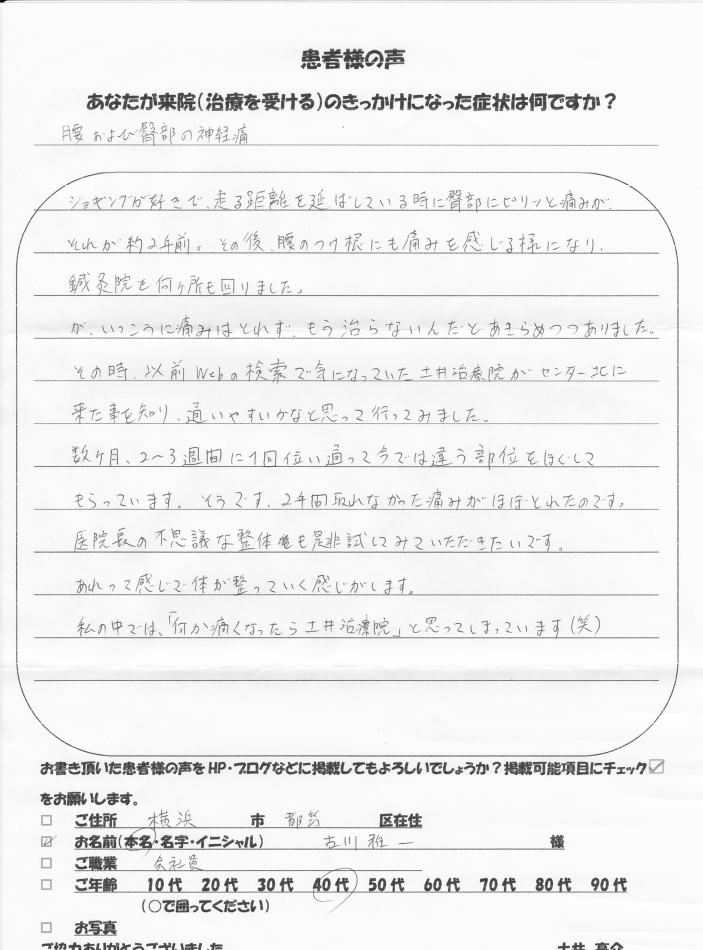 患者様の声
あなたが来院(治療を受ける)のきっかけになった症状は何ですか?
腰および臀部の神経痛
ジョギングが好きで、走る距離を延ばしている時に臀部にピリッと痛みが、
それが約2年前。その後、腰のつけ根にも痛みを感じる様になり、
鍼灸院を何ヶ所も回りました。
が、いっこうに痛みはとれず、もう治らないんだとあきらめつつありました。
その時、以前Webの検索で気になっていた土井治療院がセンター北に
来た事を知り、通いやすいかなと思って行ってみました。
数ヶ月、2〜3週間に1回位い通って今では違う部位をほぐして
もらっています。そうです、2年間取れなかった痛みがほぼとれたのです。
医院長の不思議な整体も是非試してみていただきたいです。
あれって感じで体が整っていく感じがします。
私の中では、「何か痛くなったら土井治療院」と思ってしまっています(笑)
お書き頂いた患者様の声をHP・ブログなどに掲載してもよろしいでしょうか?掲載可能項目にチェック☑
をお願いします。
□ ご住所 横浜 市 都筑 区在住
☑ お名前(本名・名字・イニシャル) 古川 雅一 様
□ ご職業 会社員
□ ご年齢 10代 20代 30代 40代 50代 60代 70代 80代 90代
(○で囲ってください)
□ お写真
ご協力ありがとうございました 土井